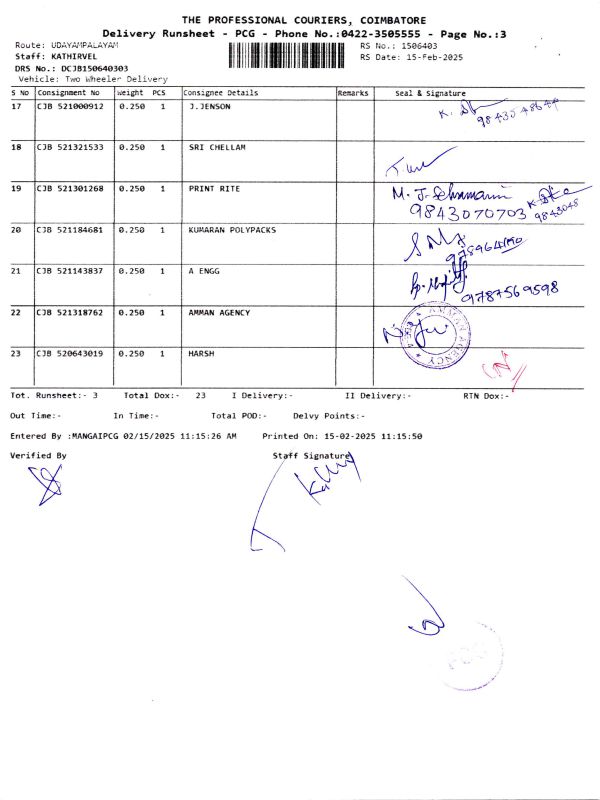 THE PROFESSIONAL COURIERS, COIMBATORE
Delivery Runsheet - PCG - Phone No.:0422-3505555 - Page No.:3
Route: UDAYAMPALAYAM RS No.: 1506403
Staff: KATHIRVEL RS Date: 15-Feb-2025
DRS No.: DCJB150640303
Vehicle: Two Wheeler Delivery
S No Consignment No Weight PCS Consignee Details Remarks Seal & Signature
17 CJB 521000912 0.250 1 J.JENSON
18 CJB 521321533 0.250 1 SRI CHELLAM
19 CJB 521301268 0.250 1 PRINT RITE
9843070703
20 CJB 521184681 0.250 1 KUMARAN POLYPACKS
21 CJB 521143837 0.250 1 A ENGG
9787569598
22 CJB 521318762 0.250 1 AMMAN AGENCY
AMMAN AGENCY
23 CJB 520643019 0.250 1 HARSH
Tot. Runsheet:- 3 Total Dox:- 23 I Delivery:- II Delivery:- RTN Dox:-
Out Time:- In Time:- Total POD:- Delvy Points:-
Entered By :MANGAIPCG 02/15/2025 11:15:26 AM Printed On: 15-02-2025 11:15:50
Verified By Staff Signature